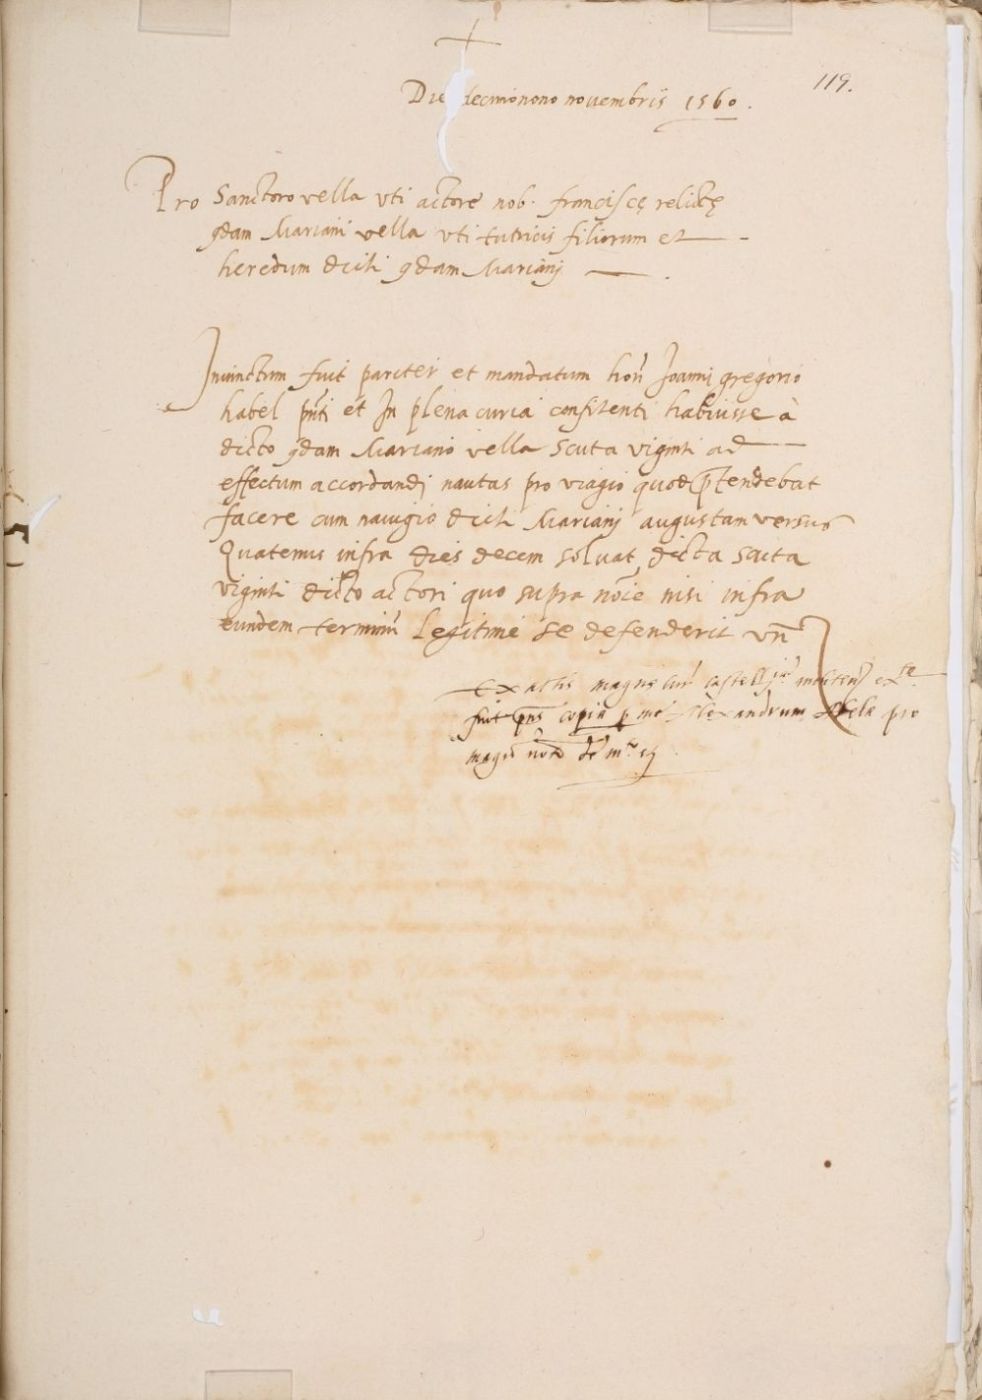 119.
Die decimonono novembris 1560.
Pro Sanctoro vella uti actore nob. francisce relicte
qdam Mariani vella uti tutricis filiorum et
heredum dicti qdam Marianj
Iniunctum fuit pariter et mandatum hon Joanni gregorio
habel pnti et In plena curia confitenti habuisse à
dicto qdam Mariano vella scuta viginti ad
effectum accordandj nautas pro viagio quod ptendebat
facere cum navigio dicti Marianj augustam versus
Quatenus infra dies decem solvat dicta scuta
viginti dicto actori quo supra noie nisi infra
eundem terminu legitime se defenderit un
Ex actis magne cur castell
fuit pns copia p me Alexandrum Abela pro
magro noto